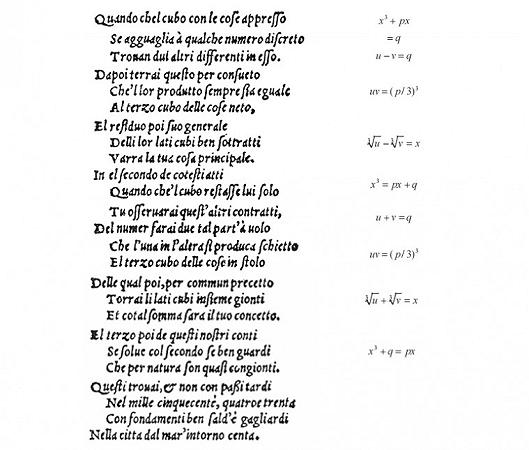 Quando chel cubo con le cose appresso x³ + px
Se agguaglia à qualche numero discreto = q
Trouan dui altri differenti in esso. u − v = q
Dapoi terrai questo per consueto
Che'l lor produtto sempre sia eguale uv = (p/3)³
Al terzo cubo delle cose neto,
El residuo poi suo generale
Delli lor lati cubi ben sottratti ∛u − ∛v = x
Varra la tua cosa principale.
In el secondo de cotesti atti
Quando che'l cubo restasse lui solo x³ = px + q
Tu osseruarai quest'altri contratti,
Del numer farai due tal part'à uolo u + v = q
Che l'una in l'altra si produca schietto
El terzo cubo delle cose in stolo uv = (p/3)³
Delle qual poi, per commun precetto
Torrai li lati cubi insieme gionti ∛u + ∛v = x
Et cotal somma sara il tuo concetto.
El terzo poi de questi nostri conti
Se solue col secondo se ben guardi x³ + q = px
Che per natura son quasi congionti.
Questi trouai, & non con passi tardi
Nel mille cinquecentè, quatroe trenta
Con fondamenti ben sald'è gagliardi
Nella citta dal mar'intorno centa.